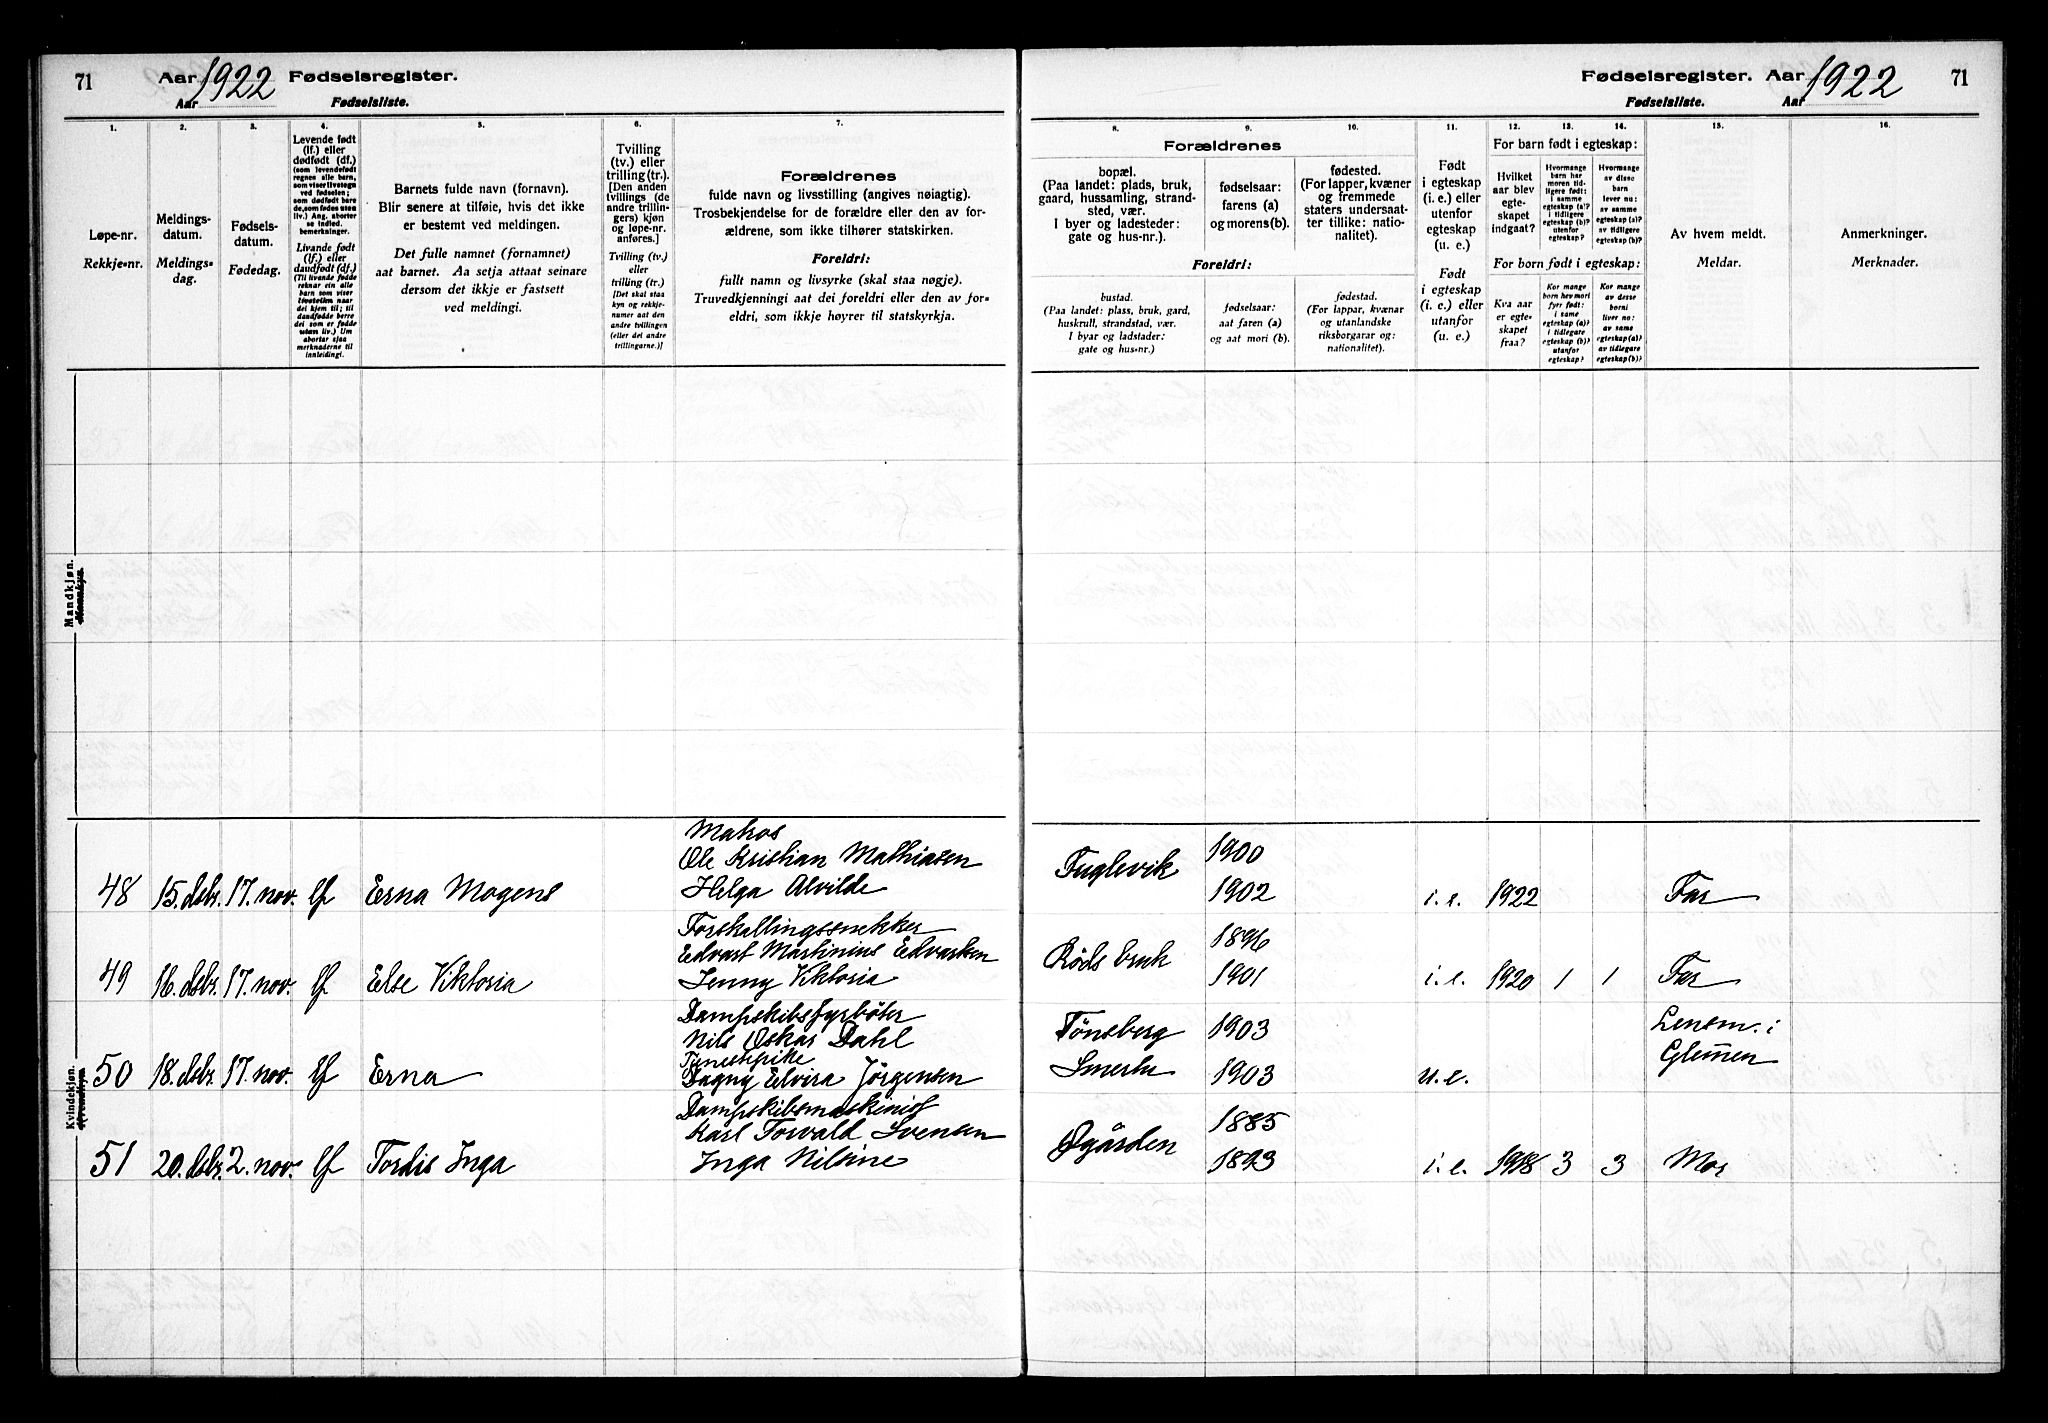 71 Aar 1922 Fødselsregister.
Aar Fødselsliste.
1.
Løpe-nr.
Rekkje-nr.
2.
Meldings-
datum.
Meldings-
dag.
3.
Fødsels-
datum.
Fødedag.
4.
Levende født
(lf.) eller
dødfødt (df.)
(som levendefødt
regnes alle barn,
som viser livstegn
ved fødselen;
som dødfødt bare
de, som fødes uten
liv.) Ang. aborter
se indled.
bemerkninger.
Livande født
(lf.) eller
daudfødt (df.)
(Til livande fødde
reknar ein alle
born som viser
livsteikn naar
dei kjem til; til
daudfødde berre
dei som er fødde
utan liv.) Um
abortar sjaa
merknaderne til
innleidingi.
5.
Barnets fulde navn (fornavn).
Blir senere at tilføie, hvis det ikke
er bestemt ved meldingen.
Det fulle namnet (fornamnet)
aat barnet. Aa setja attaat seinare
dersom det ikkje er fastsett
ved meldingi.
6.
Tvilling
(tv.) eller
trilling (tr.).
[Den anden
tvillings (de
andre trillin-
gers) kjøn
og løpe-nr.
anføres.]
Tvilling (tv.)
eller
trilling (tr.)
[Det skal staa
kyn og rekkje-
numer aat den
andre tvillingen
(eller dei andre
trillingarne.)]
7.
Forældrenes
fulde navn og livsstilling (angives nøiagtig).
Trosbekjendelse for de forældre eller den av for-
ældrene, som ikke tilhører statskirken.
Foreldri:
fullt namn og livsyrke (skal staa nøgje).
Truvedkjenningi aat dei foreldri eller den av for-
eldri, som ikkje høyrer til statskyrkja.
Mandkjøn.
Kvindekjøn.
Matros
Ole Kristian Mathiasen
48 15. dsbr. 17. nov. lf Erna Mogene Helga Alvilde
Forskallingssnekker
Edvart Martinius Edvartsen
49 16. dsbr. 17. nov. lf Else Viktoria Jenny Viktoria
Dampskibsfyrbøter
Nils Oskar Dahl
Tjenestepike
50 18. dsbr. 17. nov. lf Erna Dagny Elvira Jørgensen
Dampskibsmaskinist
Karl Torvald Svensen
51 20. dsbr. 2. nov. lf Tordis Inga Inga Nilsine
Fødselsregister. Aar 1922 71
Fødselsliste. Aar
Forældrenes
8.
bopæl.
(Paa landet: plads, bruk,
gaard, hussamling, strand-
sted, vær.
I byer og ladesteder:
gate og hus-nr.).
9.
fødselsaar:
farens (a)
og morens (b).
10.
fødested.
(For lapper, kvæner
og fremmede
staters undersaat-
ter tillike: natio-
nalitet).
Foreldri:
bustad.
(Paa landet: plass, bruk, gard,
huskrull, strandstad, vær.
I byar og ladstader:
gate og hus-nr.)
fødselsaar:
aat faren (a)
og aat mori (b).
fødestad.
(For lappar, kvænar
og utanlandske
riksborgarar og:
nationalitet).
11.
Født
i egteskap
(i. e.) eller
utenfor
egteskap
(u. e.)
Født
i egteskap
(i. e.) eller
utanfor
(u. e.)
12. 13. 14.
For barn født i egteskap:
Hvilket
aar blev
egte-
skapet
indgaat?
Hvormange
barn har
moren tid-
ligere født:
i samme
egteskap (a)?
i tidligere
egteskap (b)?
utenfor
egteskap?
Hvormange
av disse
barn
lever nu:
av samme
egteskap (a)?
av tidligere
egteskap (b)?
For born født i egteskap:
Kva aar
er egte-
skapet
fraa?
Kor mange
born hev mori
fyrr født:
i same
egteskap (a)?
i tidlegare
egteskap (b)?
utanfor
egteskap?
Kor mange
av desse
borni
liver no:
av same
egteskap (a)?
av tidlegare
egteskap (b)?
15.
Av hvem meldt.
Meldar.
16.
Anmerkninger.
Merknader.
Fuglevik 1900
1902 i. e. 1922 Far
Røds bruk 1896
1901 i. e. 1920 1 1 Far
Tønsberg 1903 Lensm. i
Smertu 1903 u. e. Glemmen
Øgården 1885
1893 i. e. 1918 3 3 Mor